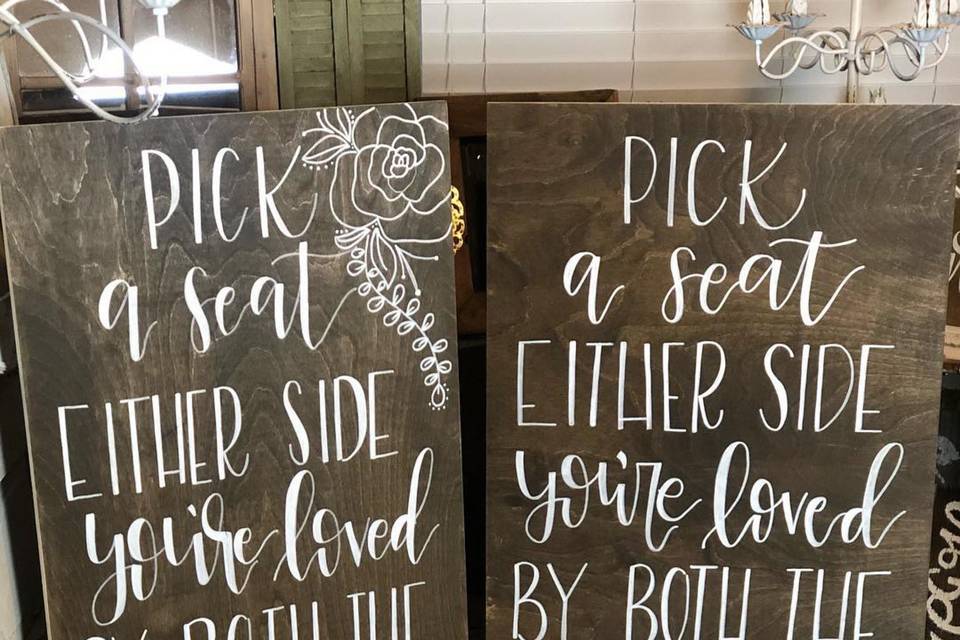 PICK
a seat
EITHER SIDE
you're loved
BY BOTH THE
PICK
a seat
EITHER SIDE
you're loved
BY BOTH THE